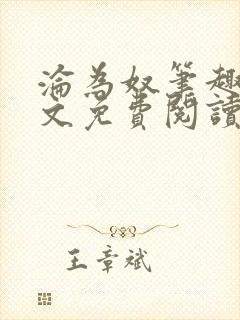 淪為奴筆趣
文免費閱讀
王章斌